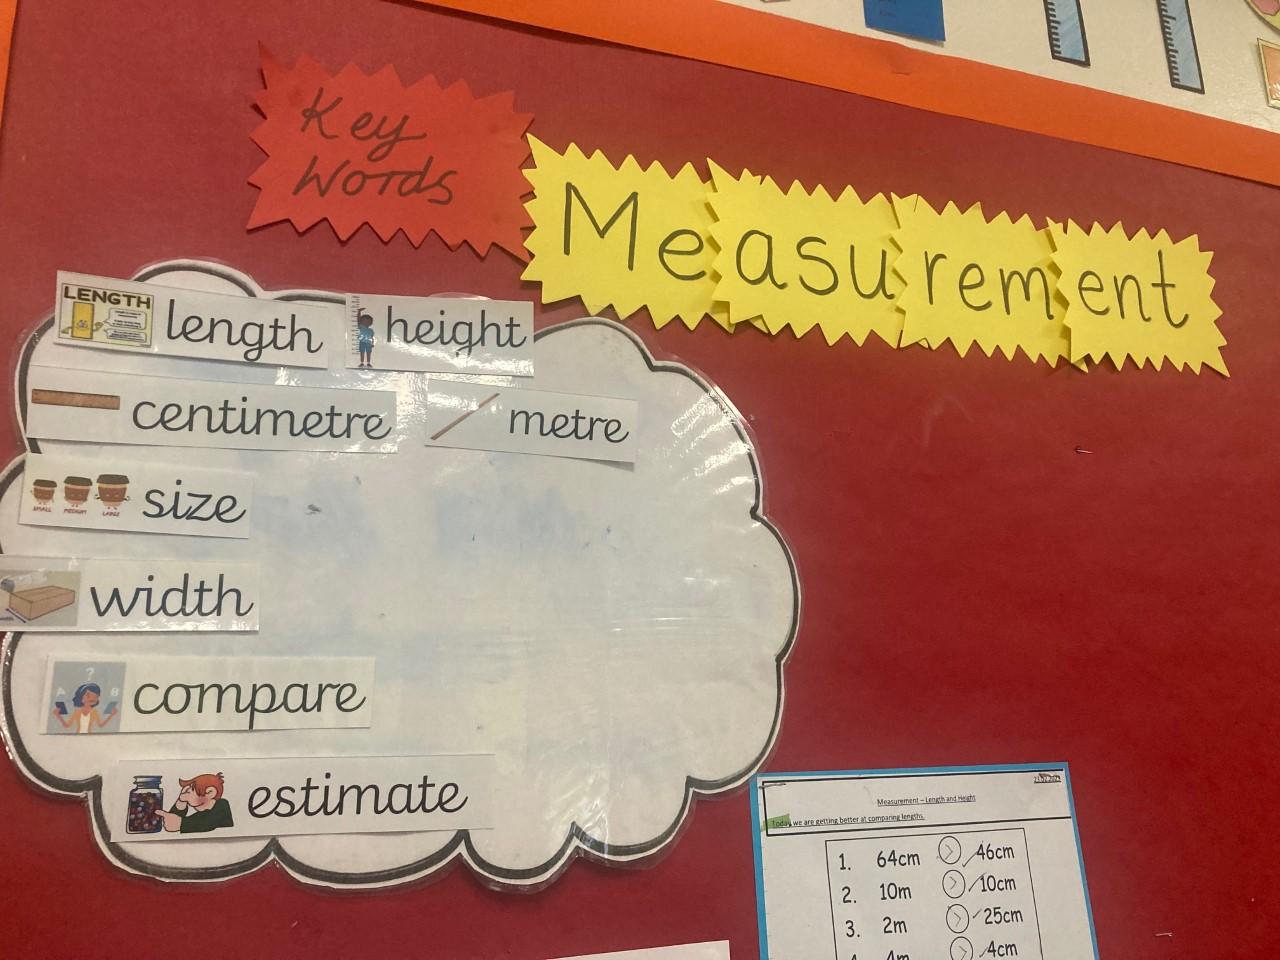 Key
Words
Measurement
LENGTH
length
height
centimetre
metre
SMALL MEDIUM LARGE
size
width
?
A B
compare
estimate
Measurement – Length and Height
Today we are getting better at comparing lengths.
1. 64cm > 46cm
2. 10m > 10cm
3. 2m > 25cm
4m > 4cm